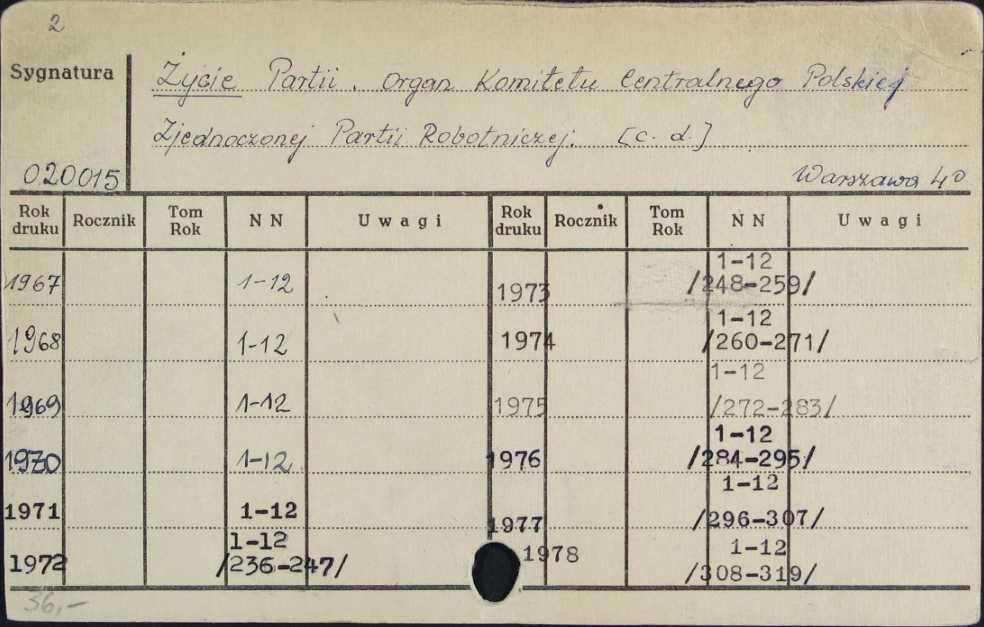 2
Sygnatura
Życie Partii. Organ Komitetu Centralnego Polskiej
Zjednoczonej Partii Robotniczej. [c. d.]
020015
Warszawa 4°
Rok druku Rocznik Tom Rok N N Uwagi Rok druku Rocznik Tom Rok N N Uwagi
1967 1-12 1973 1-12 /248-259/
1968 1-12 1974 1-12 /260-271/
1969 1-12 1975 1-12 /272-283/
1970 1-12 1976 1-12 /284-295/
1971 1-12 1977 1-12 /296-307/
1972 1-12 /236-247/ 1978 1-12 /308-319/
36,-